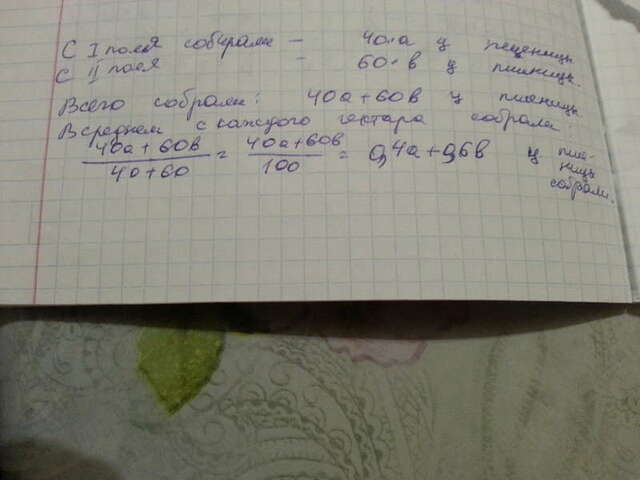 С I поля собирали – 40·а ц пшеницы
С II поля – 60·в ц пшеницы.
Всего собрали: 40а+60в ц пшеницы
В среднем с каждого гектара собрали:
(40а+60в)/(40+60) = (40а+60в)/100 = 0,4а+0,6в ц пше-
ницы
собрали.